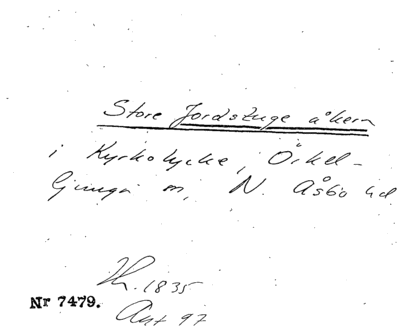 Store Jordstuge åkern
i Kyrkolycke, Örkel-
ljunga sn, N. Åsbo hd
Th. 1835
Ant 97
Nr 7479.